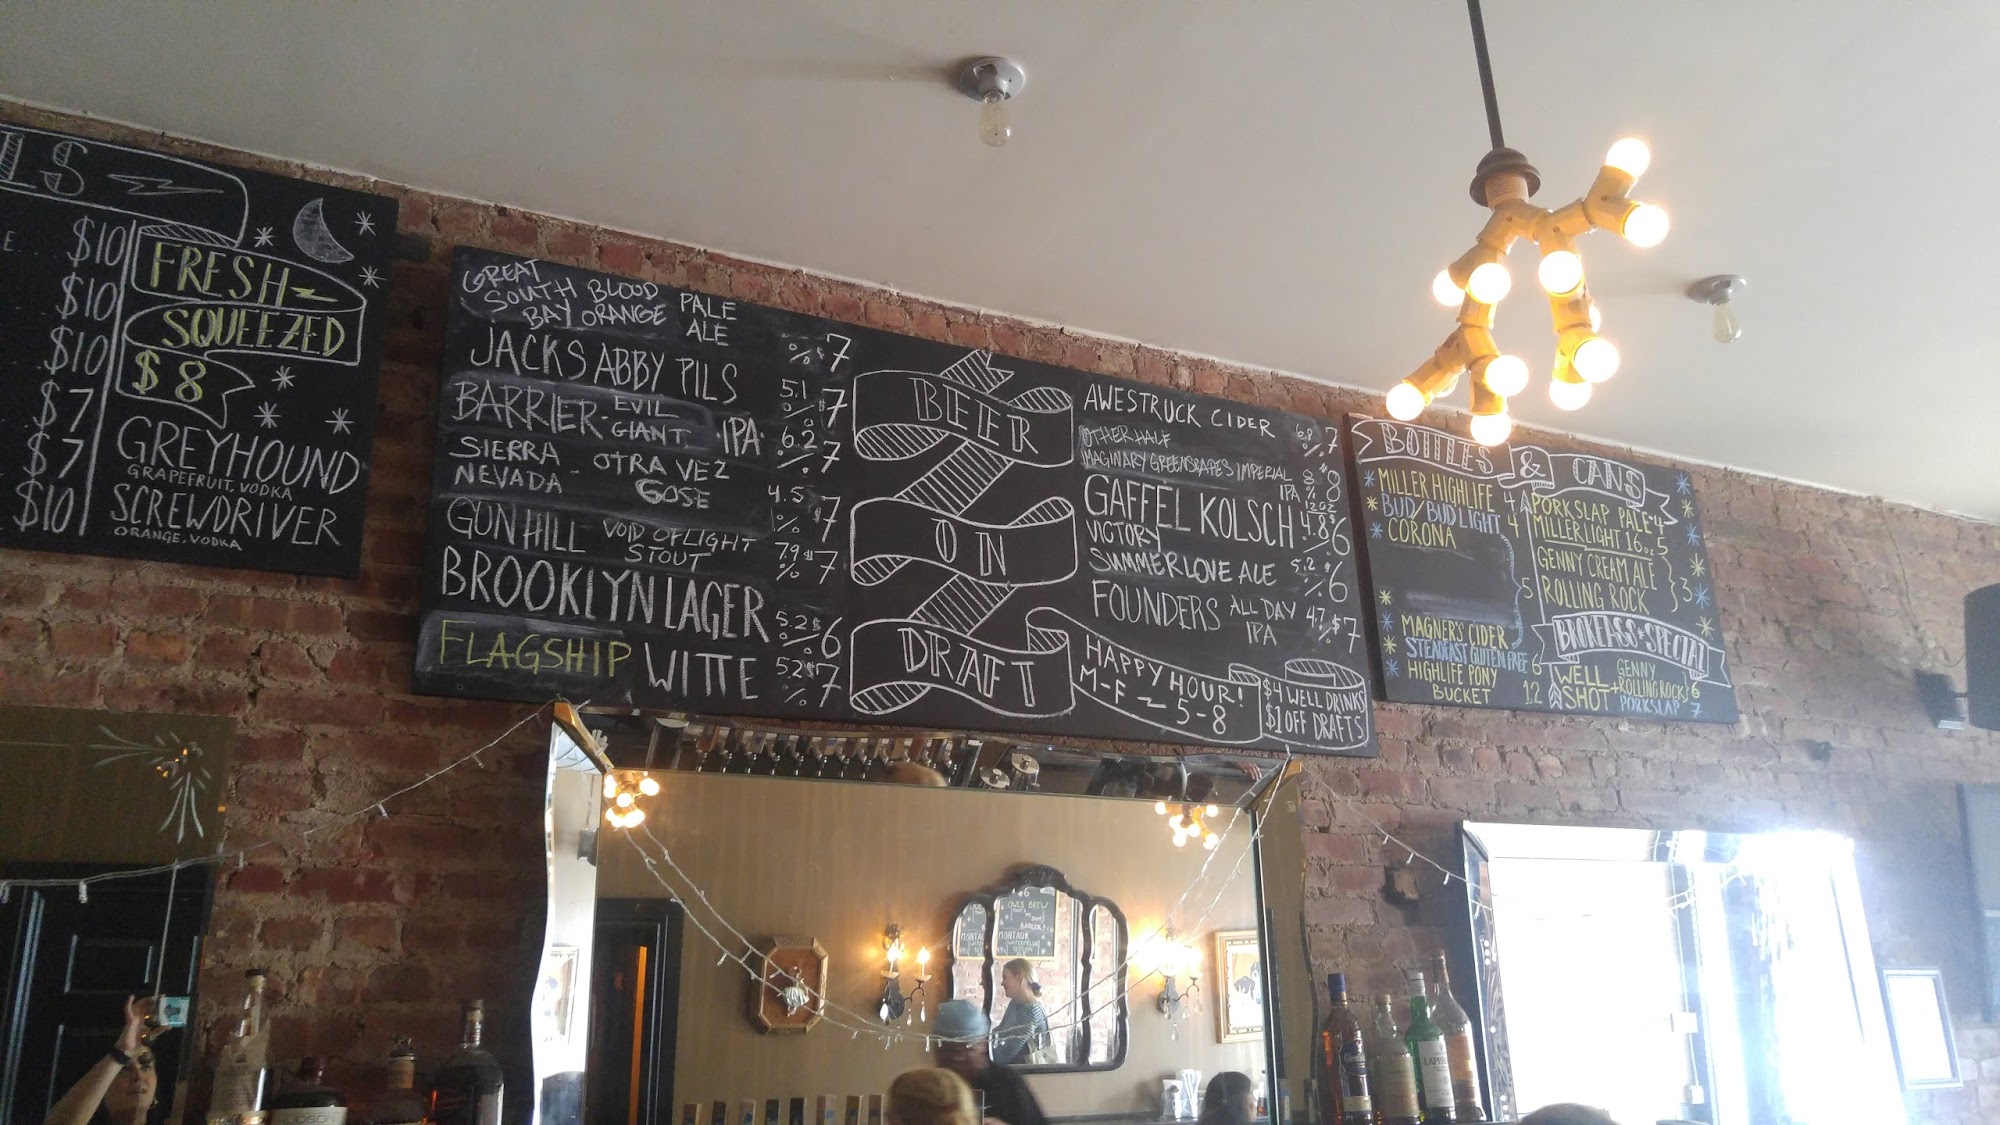 LS
$10
$10
$10
$7
$7
$10
FRESH
SQUEEZED
$8
GREYHOUND
GRAPEFRUIT, VODKA
SCREWDRIVER
ORANGE, VODKA
GREAT
SOUTH BLOOD PALE
BAY ORANGE ALE
% $7
JACKS ABBY PILS 5.1 % $7
BARRIER · EVIL GIANT · IPA 6.2 % 7
SIERRA NEVADA - OTRA VEZ GOSE 4.5 % 7
GUN HILL VOID OF LIGHT STOUT 7.9 % $7
BROOKLYN LAGER 5.2 % $6
FLAGSHIP WITTE 5.2 % $7
BEER
ON
DRAFT
AWESTRUCK CIDER 6.8 % 7
OTHER HALF
IMAGINARY GREENSCAPES IMPERIAL
IPA 8 % $8
12OZ
GAFFEL KOLSCH 4.8 % $6
VICTORY
SUMMER LOVE ALE 5.2 % $6
FOUNDERS ALL DAY IPA 4.7 % $7
HAPPY HOUR!
M-F 5-8
$4 WELL DRINKS
$1 OFF DRAFTS
BOTTLES & CANS
MILLER HIGHLIFE 4
BUD/BUD LIGHT 4
CORONA
5
MAGNER'S CIDER
STEADFAST GLUTEN FREE 6
HIGHLIFE PONY
BUCKET 12
PORKSLAP PALE 4
MILLER LIGHT 16oz 5
GENNY CREAM ALE
ROLLING ROCK
3
BROKEASS SPECIAL
WELL SHOT +
GENNY
ROLLING ROCK 6
PORKSLAP 7